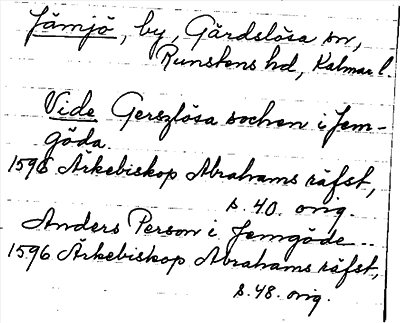 Jämjö, by, Gärdslösa sn,
Runstens hd, Kalmar l.
Vide Gerszlösa sochen i Jem-
göda.
1596 Ärkebiskop Abrahams räfst,
s. 40. orig.
Anders Person i Jemgöde..
1596 Ärkebiskop Abrahams räfst,
s. 48. orig.